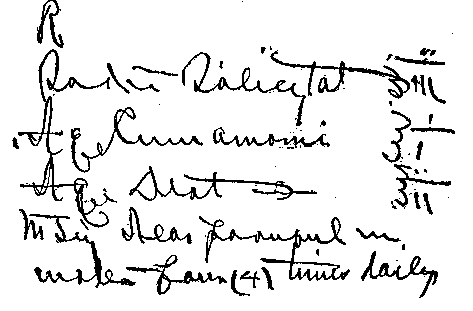 R
Sodii Salicylat ʒiii
Aq Cinnamomi ℥i
Aq Dest ℥ii
M Sig Teaspoonful in
water four (4) times daily